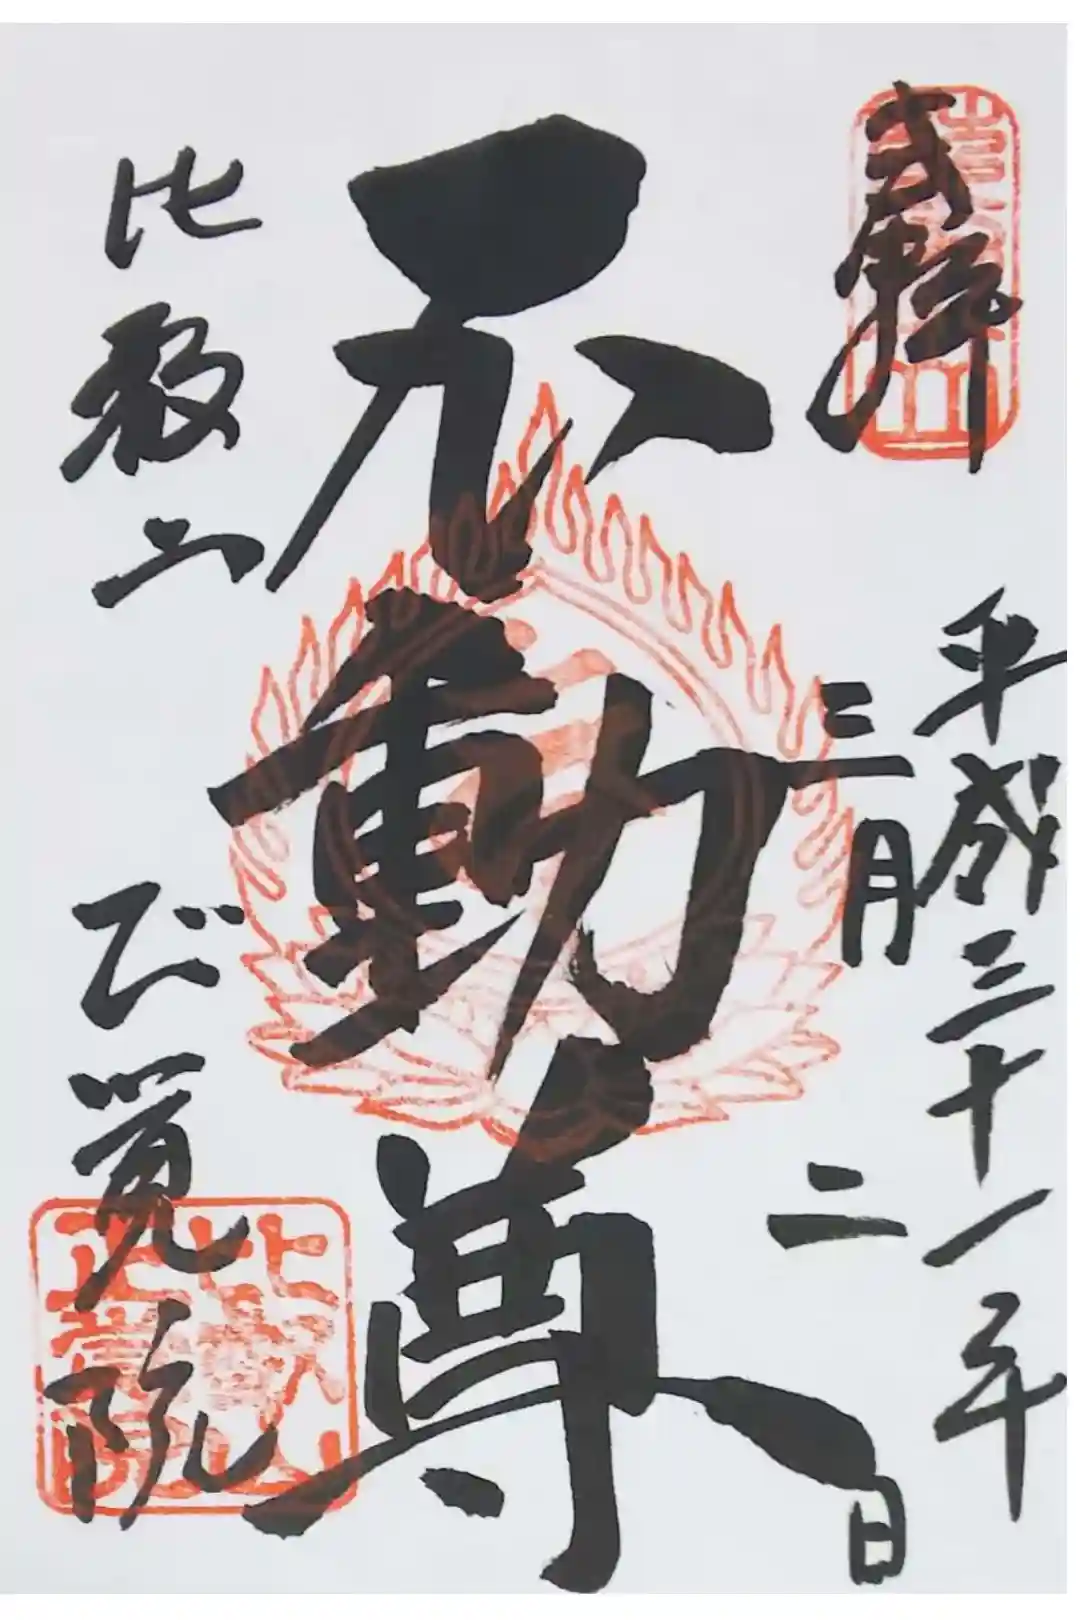 平成三十一年
三月二日
不動尊
比叡山 正覚院
比叡山
正覺院